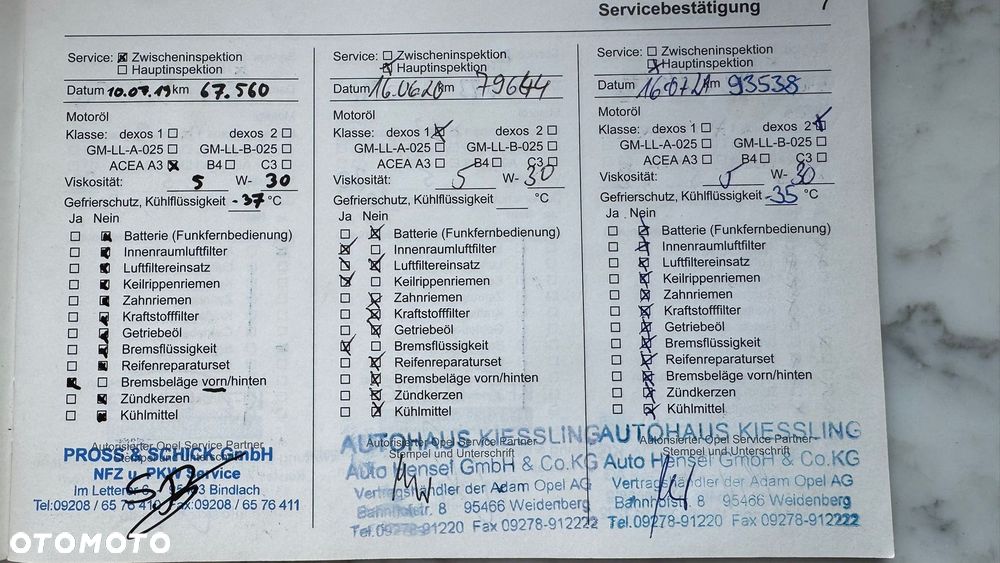 Servicebestätigung
Service: Zwischeninspektion
Hauptinspektion
Datum 10.07.19 km 67.560
Motoröl
Klasse: dexos 1 dexos 2
GM-LL-A-025 GM-LL-B-025
ACEA A3 B4 C3
Viskosität: 5 W- 30
Gefrierschutz, Kühlflüssigkeit -37 °C
Ja Nein
Batterie (Funkfernbedienung)
Innenraumluftfilter
Luftfiltereinsatz
Keilrippenriemen
Zahnriemen
Kraftstofffilter
Getriebeöl
Bremsflüssigkeit
Reifenreparaturset
Bremsbeläge vorn/hinten
Zündkerzen
Kühlmittel
Autorisierter Opel Service Partner
Stempel und Unterschrift
PROSS & SCHICK GmbH
NFZ u. PKW Service
Im Letten Bindlach
Tel:09208 / 65 76 410 Fax:09208 / 65 76 411
Service: Zwischeninspektion
Hauptinspektion
Datum 16.0620 km 79644
Motoröl
Klasse: dexos 1 dexos 2
GM-LL-A-025 GM-LL-B-025
ACEA A3 B4 C3
Viskosität: 5 W- 30
Gefrierschutz, Kühlflüssigkeit °C
Ja Nein
Batterie (Funkfernbedienung)
Innenraumluftfilter
Luftfiltereinsatz
Keilrippenriemen
Zahnriemen
Kraftstofffilter
Getriebeöl
Bremsflüssigkeit
Reifenreparaturset
Bremsbeläge vorn/hinten
Zündkerzen
Kühlmittel
Autorisierter Opel Service Partner
Stempel und Unterschrift
AUTOHAUS KIESSLING
Auto Hensel GmbH & Co.KG
Vertragshändler der Adam Opel AG
Bahnhofstr. 8 95466 Weidenberg
Tel.09278-91220 Fax 09278-912222
Service: Zwischeninspektion
Hauptinspektion
Datum 16.07.21 km 93538
Motoröl
Klasse: dexos 1 dexos 2
GM-LL-A-025 GM-LL-B-025
ACEA A3 B4 C3
Viskosität: 5 W- 30
Gefrierschutz, Kühlflüssigkeit -35 °C
Ja Nein
Batterie (Funkfernbedienung)
Innenraumluftfilter
Luftfiltereinsatz
Keilrippenriemen
Zahnriemen
Kraftstofffilter
Getriebeöl
Bremsflüssigkeit
Reifenreparaturset
Bremsbeläge vorn/hinten
Zündkerzen
Kühlmittel
Autorisierter Opel Service Partner
Stempel und Unterschrift
AUTOHAUS KIESSLING
Auto Hensel GmbH & Co.KG
Vertragshändler der Adam Opel AG
Bahnhofstr. 8 95466 Weidenberg
Tel.09278-91220 Fax 09278-912222
OTOMOTO